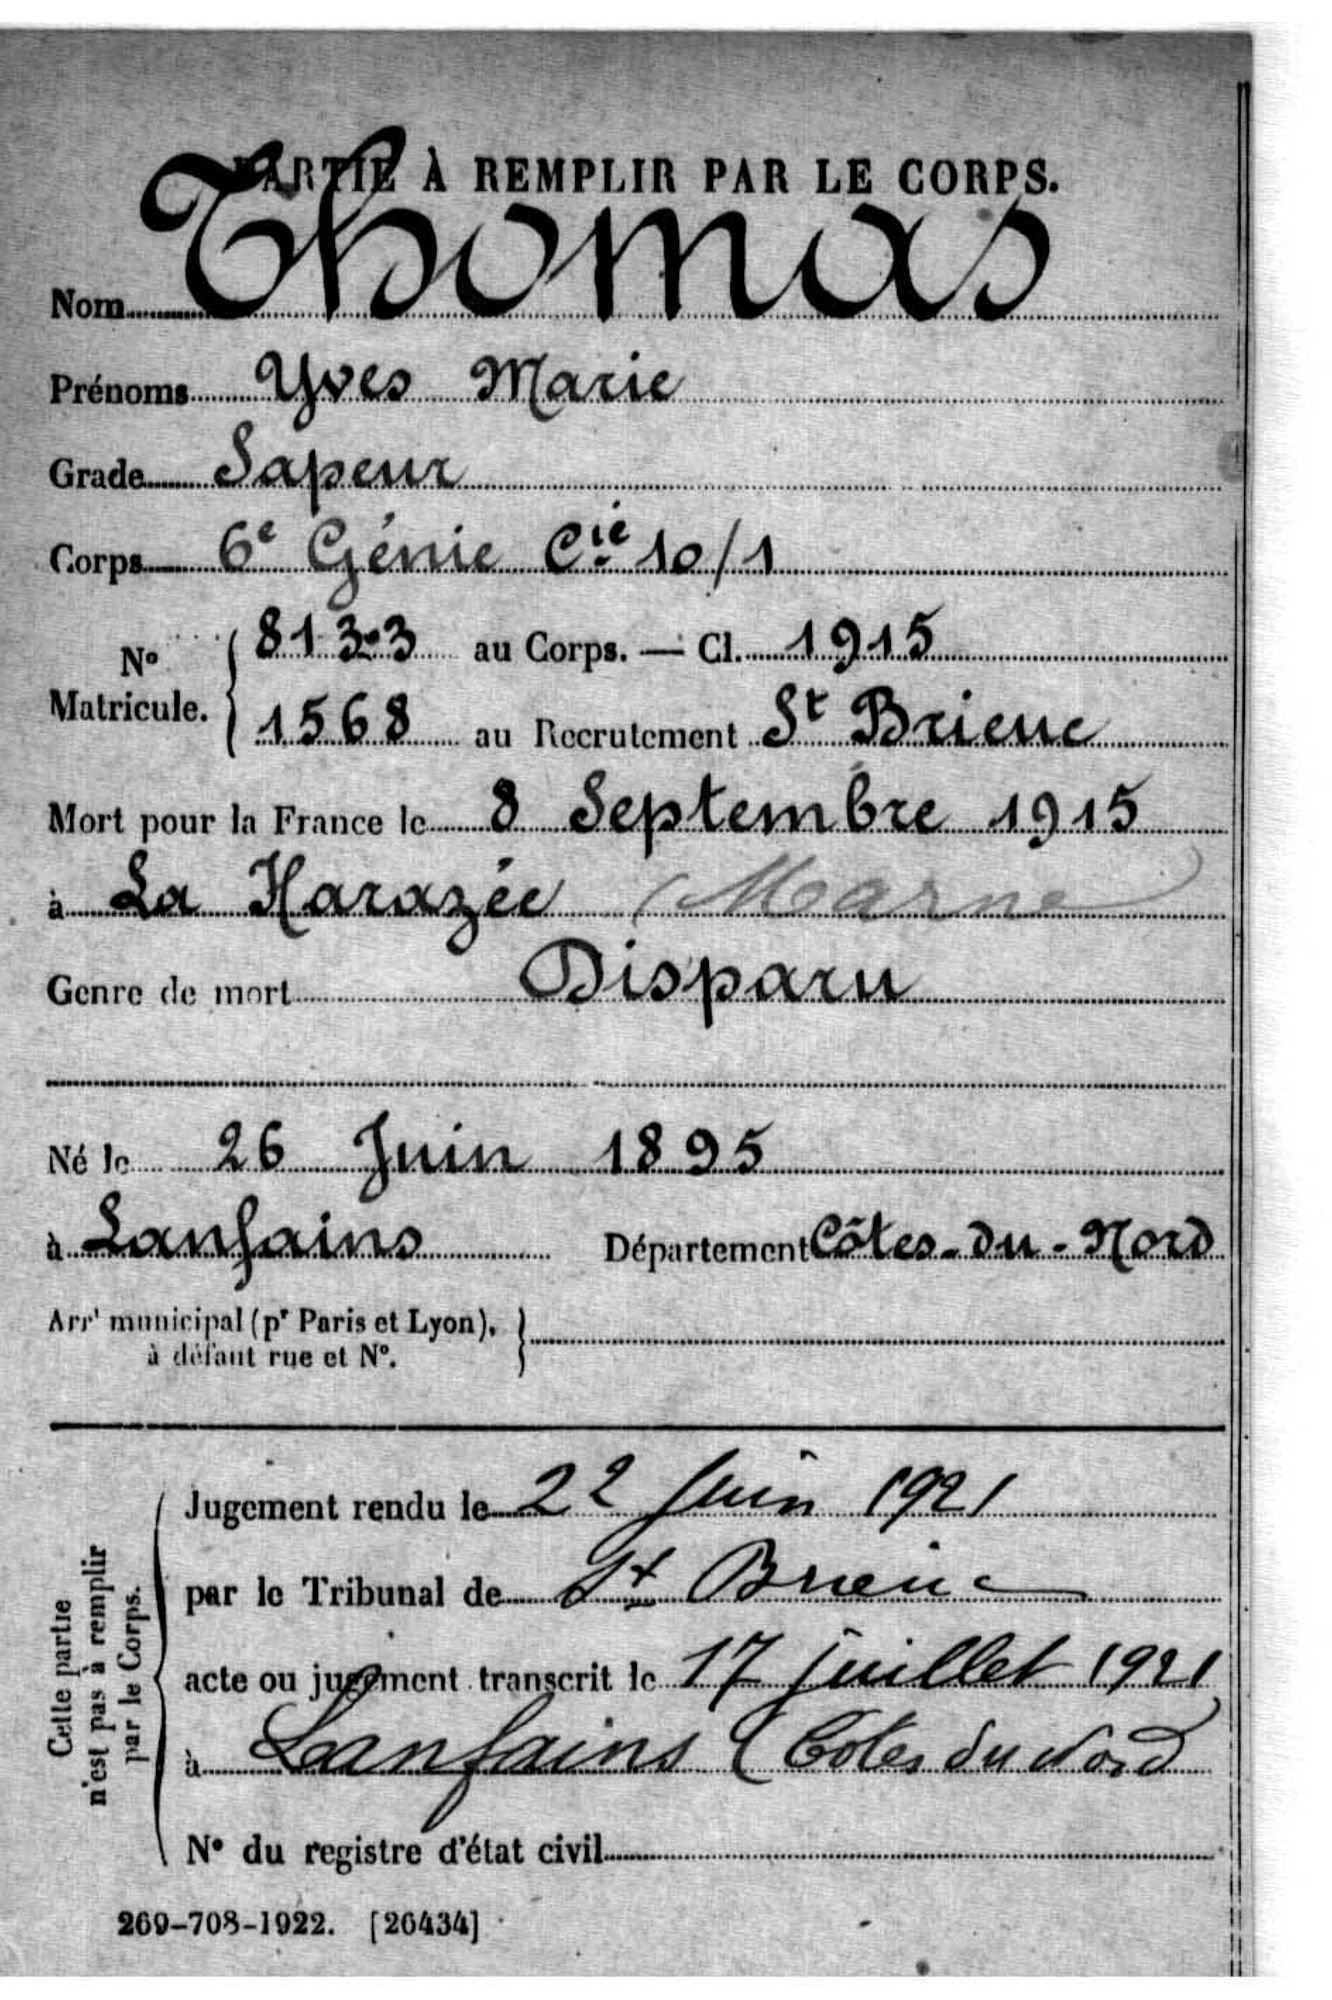 PARTIE À REMPLIR PAR LE CORPS.
Nom Thomas
Prénoms Yves Marie
Grade Sapeur
Corps 6e Génie Cie 10/1
No Matricule. { 8133 au Corps. — Cl. 1915
1568 au Recrutement St Brieuc
Mort pour la France le 8 Septembre 1915
à La Harazée (Marne)
Genre de mort Disparu
Né le 26 Juin 1895
à Lanfains Département Côtes-du-Nord
Arrt municipal (pr Paris et Lyon), }
à défaut rue et No.
Cette partie
n'est pas à remplir
par le Corps.
Jugement rendu le 22 Juin 1921
par le Tribunal de St Brieuc
acte ou jugement transcrit le 17 juillet 1921
à Lanfains (Cotes du Nord)
No du registre d'état civil
269-708-1922. [26434]